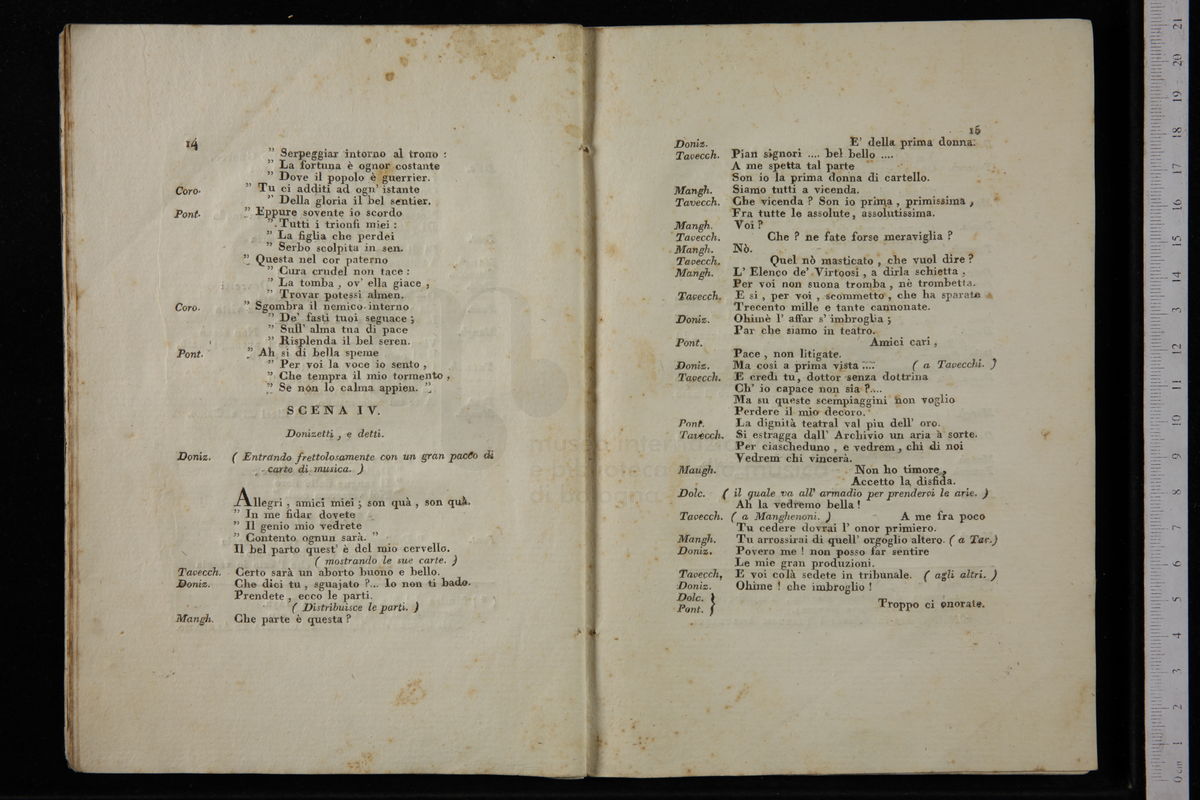 14
” Serpeggiar intorno al trono :
” La fortuna è ognor costante
” Dove il popolo è guerrier.
Coro. ” Tu ci additi ad ogn' istante
” Della gloria il bel sentier.
Pont. ” Eppure sovente io scordo
” Tutti i trionfi miei :
” La figlia che perdei
” Serbo scolpita in sen.
” Questa nel cor paterno
” Cura crudel non tace :
” La tomba , ov' ella giace ,
” Trovar potessi almen.
Coro. ” Sgombra il nemico interno
” De' fasti tuoi seguace ;
” Sull' alma tua di pace
” Risplenda il bel seren.
Pont. ” Ah si di bella speme
” Per voi la voce io sento ,
” Che tempra il mio tormento ,
” Se non lo calma appien. ”
SCENA IV.
Donizetti , e detti.
Doniz. ( Entrando frettolosamente con un gran pacco di
carte di musica. )
Allegri , amici miei ; son quà , son quà.
” In me fidar dovete
” Il genio mio vedrete
” Contento ognun sarà. ”
Il bel parto quest' è del mio cervello.
( mostrando le sue carte. )
Tavecch. Certo sarà un aborto buono e bello.
Doniz. Che dici tu , sguajato ?... Io non ti bado.
Prendete , ecco le parti.
( Distribuisce le parti. )
Mangh. Che parte è questa ?
15
Doniz. E' della prima donna.
Tavecch. Pian signori .... bel bello ....
A me spetta tal parte
Son io la prima donna di cartello.
Mangh. Siamo tutti a vicenda.
Tavecch. Che vicenda ? Son io prima , primissima ,
Fra tutte le assolute, assolutissima.
Mangh. Voi ?
Tavecch. Che ? ne fate forse meraviglia ?
Mangh. Nò.
Tavecch. Quel nò masticato , che vuol dire ?
Mangh. L' Elenco de' Virtoosi , a dirla schietta ,
Per voi non suona tromba , nè trombetta.
Tavecch. E si , per voi , scommetto , che ha sparate
Trecento mille e tante cannonate.
Doniz. Ohimè l' affar s' imbroglia ;
Par che siamo in teatro.
Pont. Amici cari ,
Pace , non litigate.
Doniz. Ma così a prima vista .... ( a Tavecchi. )
Tavecch. E credi tu, dottor senza dottrina
Ch' io capace non sia ?....
Ma su queste scempiaggini non voglio
Perdere il mio decoro.
Pont. La dignità teatral val piu dell' oro.
Tavecch. Si estragga dall' Archivio un aria a sorte.
Per ciascheduno , e vedrem , chi di noi
Vedrem chi vincerà.
Maugh. Non ho timore ,
Accetto la disfida.
Dolc. ( il quale va all' armadio per prendervi le arie. )
Ah la vedremo bella !
Tavecch. ( a Manghenoni. ) A me fra poco
Tu cedere dovrai l' onor primiero.
Mangh. Tu arrossirai di quell' orgoglio altero. ( a Tav.)
Doniz. Povero me ! non posso far sentire
Le mie gran produzioni.
Tavecch, E voi colà sedete in tribunale. ( agli altri. )
Doniz. Ohime ! che imbroglio !
Dolc. }
Pont. } Troppo ci onorate.